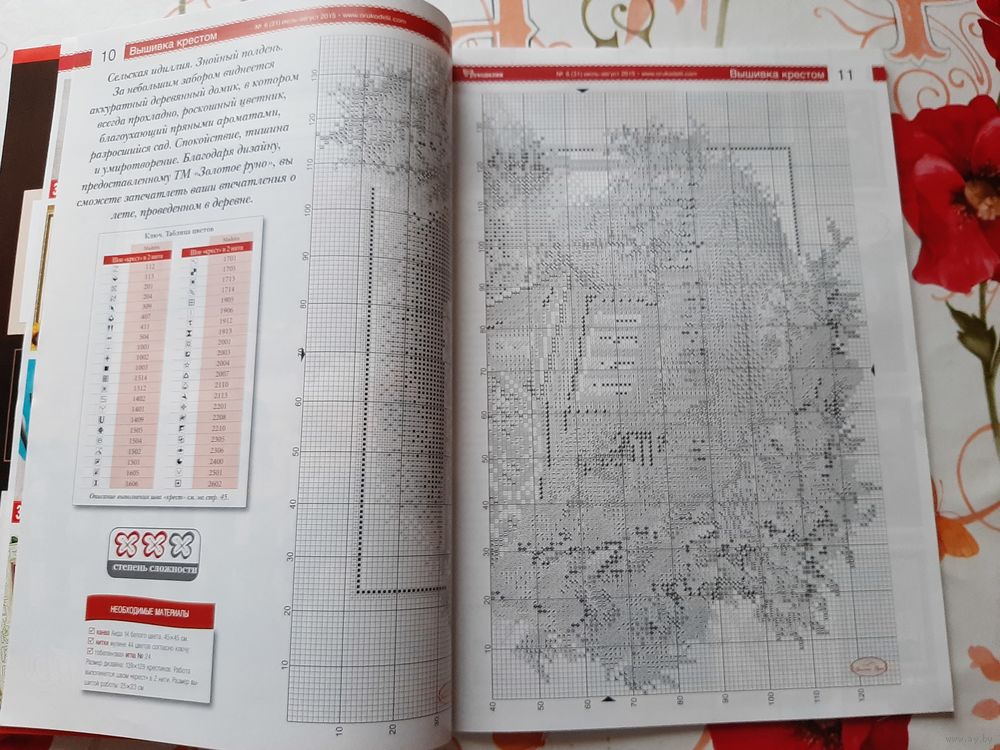 10
Вышивка крестом
№ 6 (31) июль-август 2015 • www.orukodelii.com
Сельская идиллия. Знойный полдень.
За небольшим забором виднеется
аккуратный деревянный домик, в котором
всегда прохладно, роскошный цветник,
благоухающий пряными ароматами,
разросшийся сад. Спокойствие, тишина
и умиротворение. Благодаря дизайну,
предоставленному ТМ «Золотое руно», вы
сможете запечатлеть ваши впечатления о
лете, проведенном в деревне.
Ключ. Таблица цветов
Madeira
Шов «крест» в 2 нити
112
113
201
204
309
407
411
504
1001
1002
1003
1314
1312
1402
1401
1409
1505
1504
1502
1501
1605
1606
Madeira
Шов «крест» в 2 нити
1701
1703
1713
1714
1905
1906
1912
1913
2001
2003
2004
2007
2110
2113
2201
2208
2210
2305
2306
2400
2501
2602
Описание выполнения шва «крест» см. на стр. 45.
степень сложности
НЕОБХОДИМЫЕ МАТЕРИАЛЫ
канва Аида 14 белого цвета, 45×45 см
нитки мулине 44 цветов согласно ключу
гобеленовая игла № 24
Размер дизайна: 139×129 крестиков. Работа
выполняется швом «крест» в 2 нити. Размер вы-
шитой работы: 25×23 см
130
120
110
100
90
80
70
60
50
40
30
20
10
10
20
30
№ 6 (31) июль-август 2015 • www.orukodelii.com
Вышивка крестом
11
110
100
90
80
70
60
50
40
30
20
10
40
50
60
70
80
90
100
110
120
www.ay.by